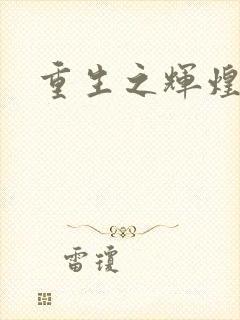 重生之輝煌
雷瓊